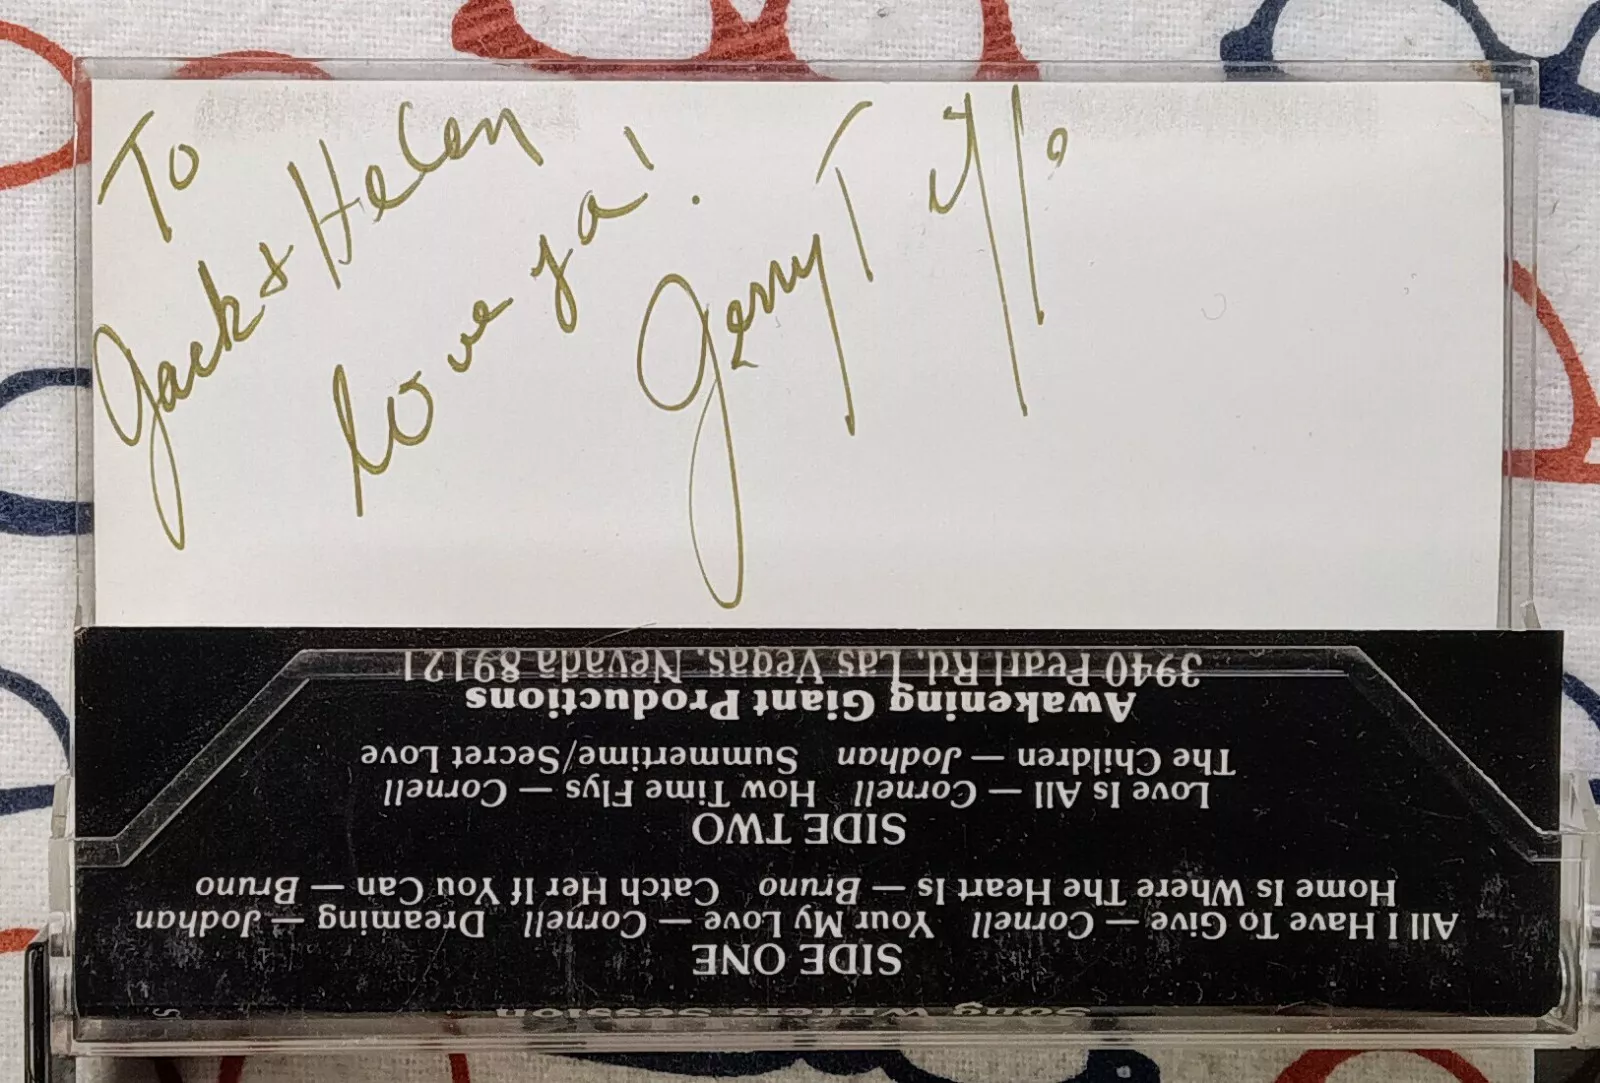 To
Jack & Helen
love ya!
Jerry
Song Writers Session
SIDE ONE
All I Have To Give — Cornell Your My Love — Cornell Dreaming — Jodhan
Home Is Where The Heart Is — Bruno Catch Her If You Can — Bruno
SIDE TWO
Love Is All — Cornell How Time Flys — Cornell
The Children — Jodhan Summertime/Secret Love
Awakening Giant Productions
3940 Pearl Rd. Las Vegas, Nevada 89121